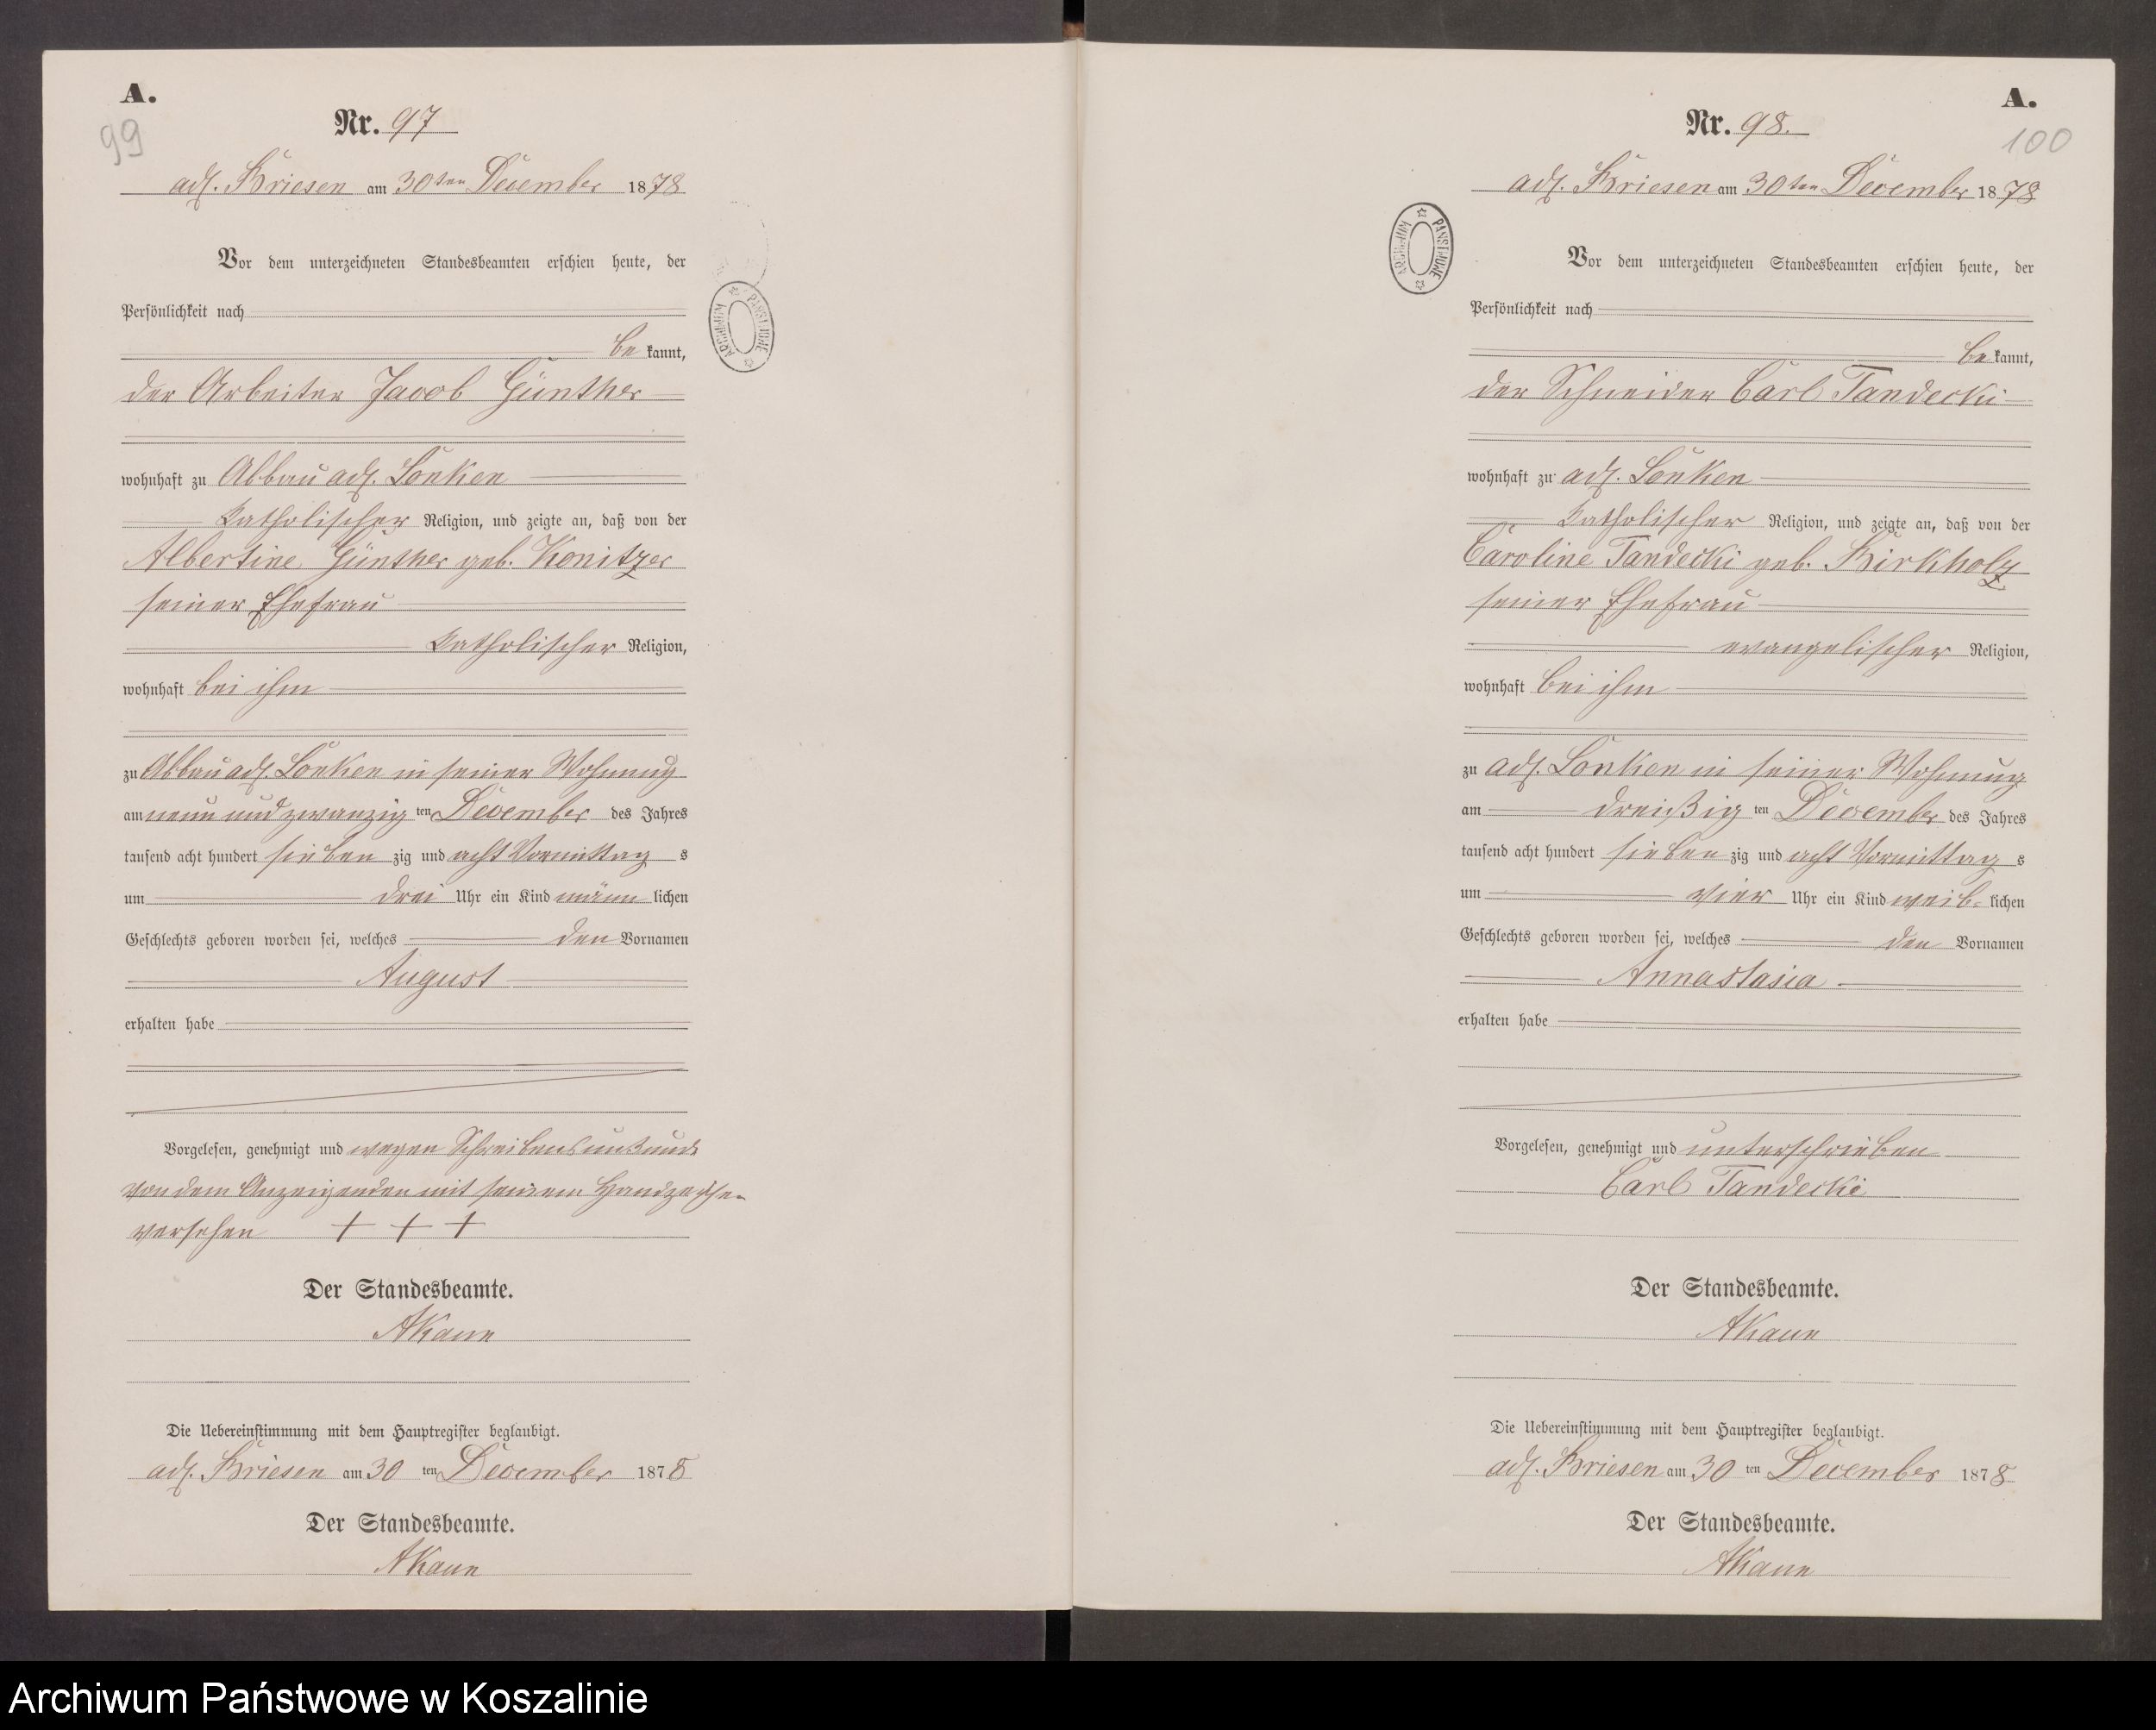 A.
99
Nr. 97
adl. Briesen am 30ten December 1878
Vor dem unterzeichneten Standesbeamten erschien heute, der
Persönlichkeit nach
be kannt,
der Arbeiter Jacob Günther
wohnhaft zu Abbau adl. Lonken
katholischer Religion, und zeigte an, daß von der
Albertine Günther geb. Konitzer
seiner Ehefrau
katholischer Religion,
wohnhaft bei ihm
zu Abbau adl. Lonken in seiner Wohnung
am neun und zwanzig ten December des Jahres
tausend acht hundert sieben zig und acht Vormittag s
um drei Uhr ein Kind männ lichen
Geschlechts geboren worden sei, welches den Vornamen
August
erhalten habe
Vorgelesen, genehmigt und wegen Schreibensunkunde
von dem Anzeigenden mit seinem Handzeichen
versehen + + +
Der Standesbeamte.
AKaun
Die Uebereinstimmung mit dem Hauptregister beglaubigt.
adl. Briesen am 30 ten December 1878
Der Standesbeamte.
AKaun
ARCHIWUM PAŃSTWOWE
A.
100
Nr. 98.
adl. Briesen am 30ten December 1878
Vor dem unterzeichneten Standesbeamten erschien heute, der
Persönlichkeit nach
be kannt,
der Schneider Carl Tandecki
wohnhaft zu adl. Lonken
katholischer Religion, und zeigte an, daß von der
Caroline Tandecki geb. Birkholz
seiner Ehefrau
evangelischer Religion,
wohnhaft bei ihm
zu adl. Lonken in seiner Wohnung
am dreißig ten December des Jahres
tausend acht hundert sieben zig und acht Vormittag s
um vier Uhr ein Kind weib- lichen
Geschlechts geboren worden sei, welches den Vornamen
Annastasia
erhalten habe
Vorgelesen, genehmigt und unterschrieben
Carl Tandecki
Der Standesbeamte.
AKaun
Die Uebereinstimmung mit dem Hauptregister beglaubigt.
adl. Briesen am 30 ten December 1878
Der Standesbeamte.
AKaun
ARCHIWUM PAŃSTWOWE
Archiwum Państwowe w Koszalinie